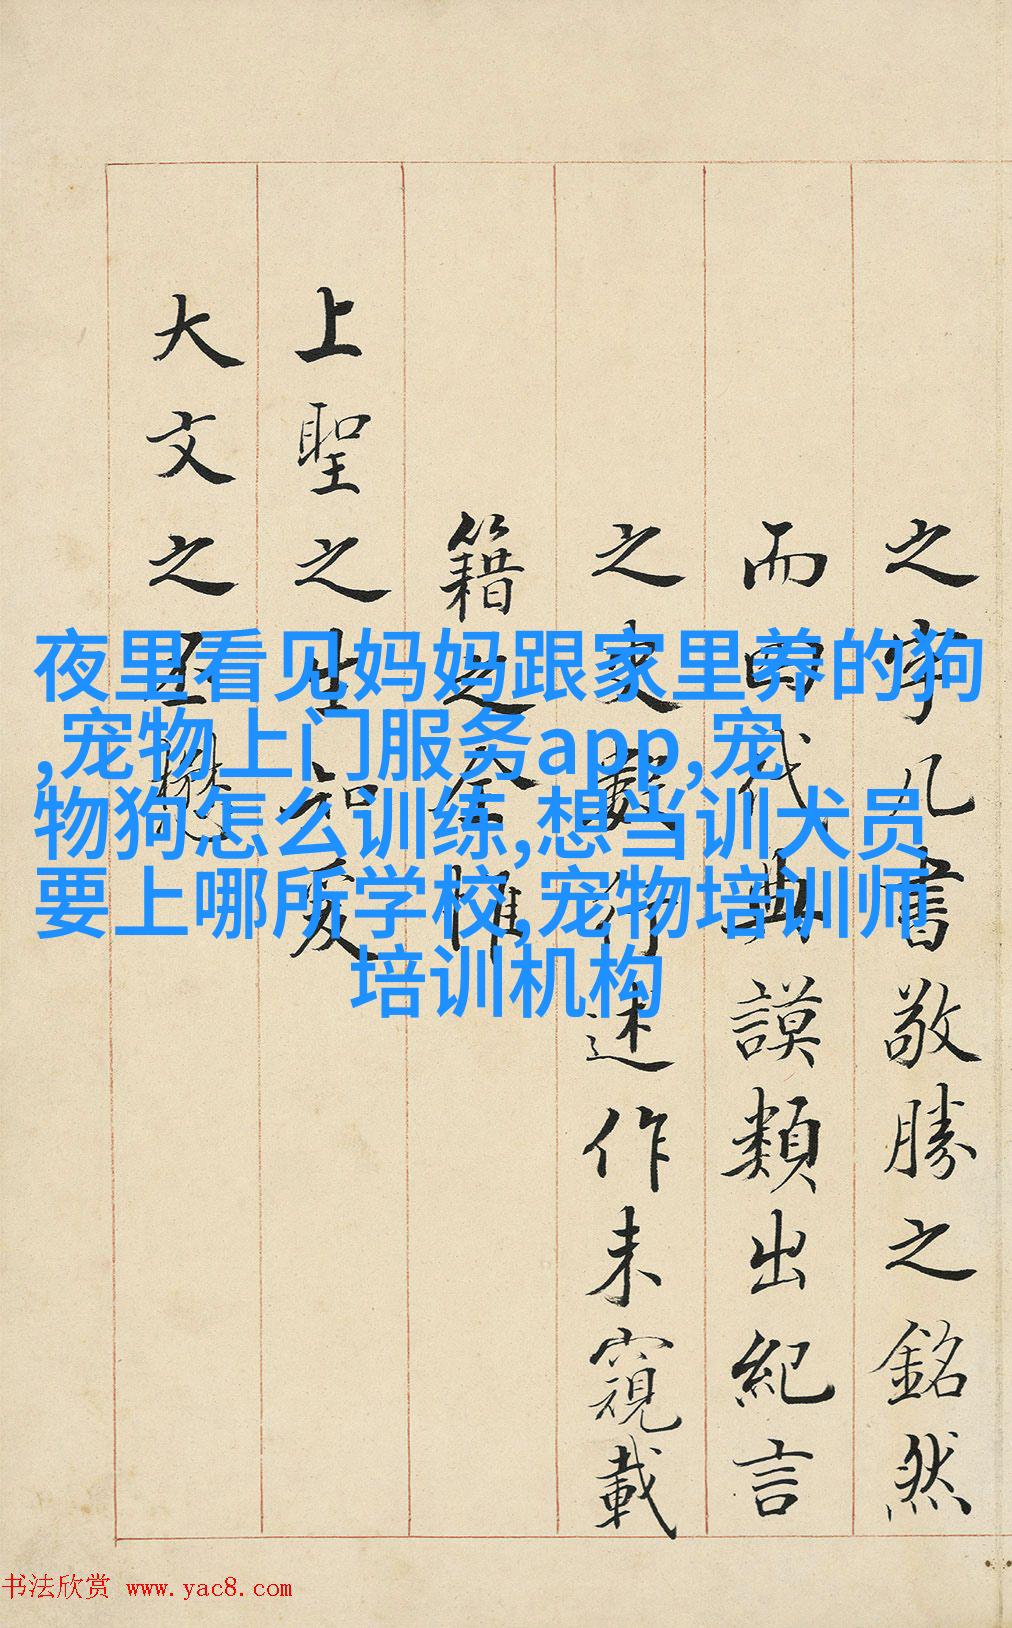 夜里看见妈妈跟家里养的狗
,宠物上门服务app,宠
物狗怎么训练,想当训犬员
要上哪所学校,宠物培训师
培训机构
之凡書敬勝之銘然
而四代典謨類出紀言
之史述作未窺載
籍之全惟
上聖之生知爰
大文之
书法欣赏 www.yac8.com